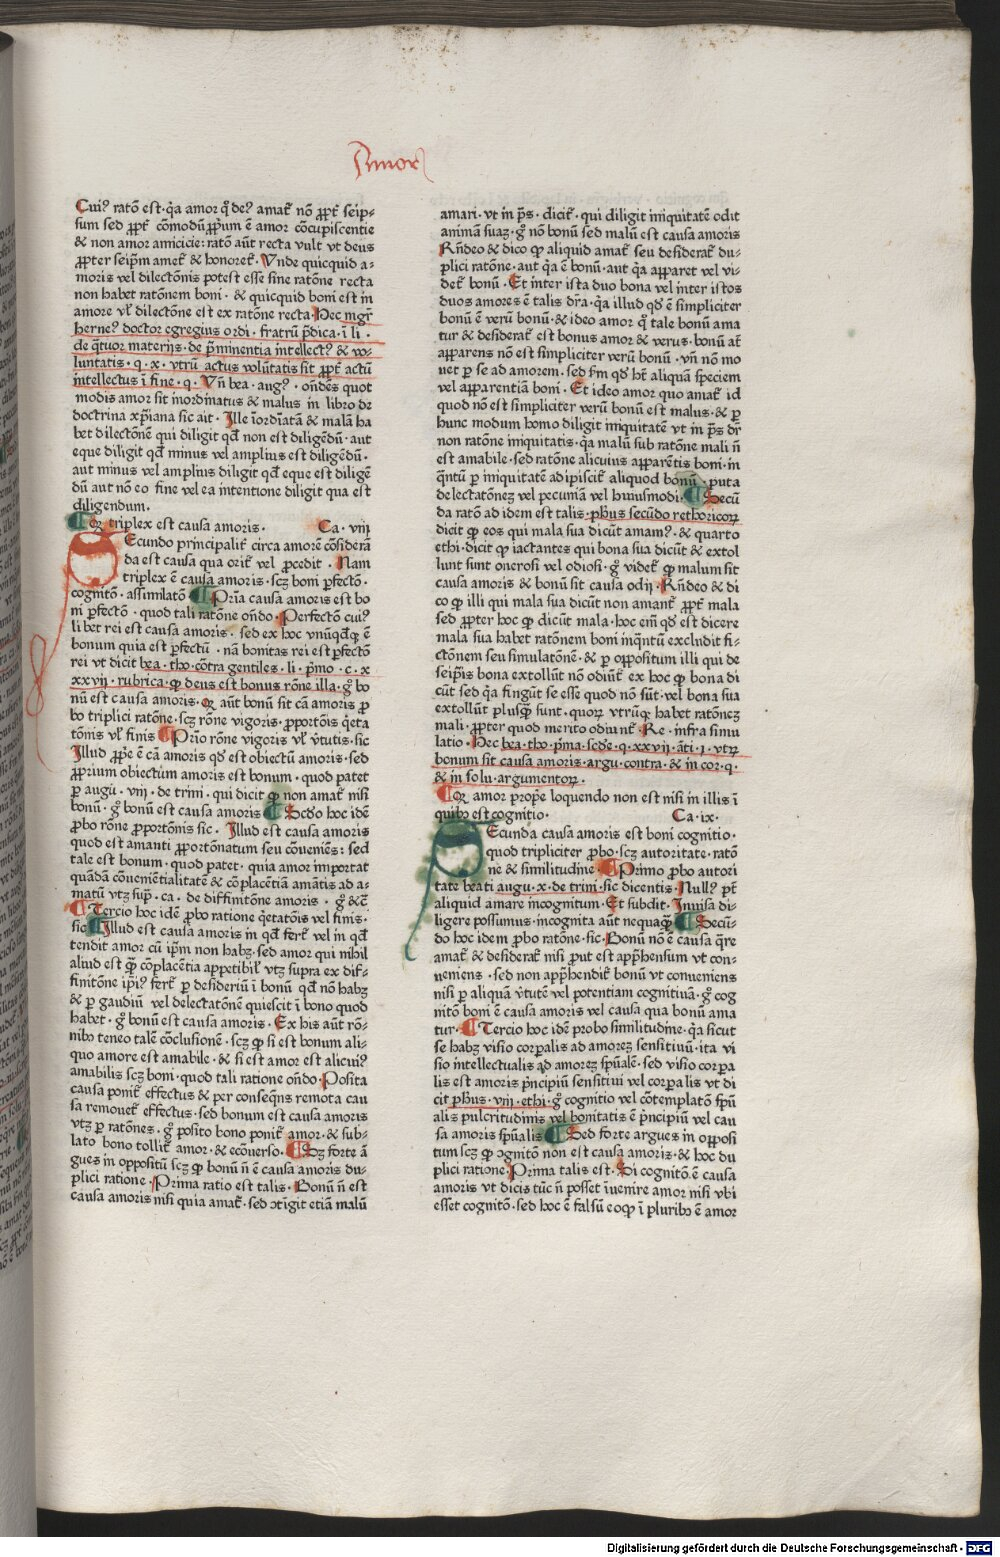 Amor
Cui⁹ ratō est · q̇a amor q̊ de⁹ amat᷑ nō ꝓpt᷑ seip-
sum sed ꝓpt᷑ cōmodū ꝓprium ē amor cōcupiscentie
& non amor amicicie: ratō aūt recta vult vt deus
ꝓpter seip̄m amet᷑ & honoret᷑ · Vnde quicquid a-
moris vel dilectōnis potest esse sine ratōne recta
non habet ratōnem boni · & quicquid boni est in
amore vl᷑ dilectōne est ex ratōne recta · Hec mgr̄
herue⁹ doctor egregius ordi · fratrū p̄dica · ī li ·
de q̄tuor materijs · de p̄minentia intellect⁹ & vo-
luntatis · q · x · vtrū actus volūtatis sit ꝓpt᷑ actū
intellectus ī fine · q · Vn̄ bea · aug⁹ · ondēs quot
modis amor sit inordinatus & malus in libro de
doctrina xp̄iana sic ait · Ille īordiatā & malā ha
bet dilectōnē qui diligit qd̄ non est diligēdū · aut
eque diligit qd̄ minus vel amplius est diligēdū ·
aut minus vel amplius diligit qd̄ eque est diligē
dū aut nō eo fine vel ea intentione diligit qua est
diligendum ·
ꝙ triplex est causa amoris · Ca · viij
Ecundo principalit᷑ circa amorē cōsiderā
da est causa qua orit᷑ vel ꝓcedit · Nam
triplex ē causa amoris · scꝫ boni ꝑfectō ·
cognitō · assimilatō Pr̄ia causa amoris est bo
ni ꝑfectō · quod tali ratōne ondo · Perfectō cui⁹
libet rei est causa amoris · sed ex hoc vnūqd̄qꝫ ē
bonum quia est ꝑfectū · nā bonitas rei est ꝑfectō
rei vt dicit bea · tho · cōtra gentiles · li · p̄mo · c · x
xxvij · rubrica · ꝙ deus est bonus rōne illa · gͦ bo
nū est causa amoris · ꝙ aūt bonū sit cā amoris ꝓ
bo triplici ratōne · scꝫ rōne vigoris · ꝓportōis q̇eta
tōnis vl᷑ finis Prīo rōne vigoris vl᷑ v̄tutis · sic
Illud ꝓpe ē cā amoris qd̄ est obiectū amoris · sed
ꝓprium obiectum amoris est bonum · quod patet
ꝑ augu · viij · de trini · qui dicit ꝙ non amat᷑ nisi
bonū · gͦ bonū est causa amoris Scd̄o hoc idē
ꝓbo rōne ꝓportōnis sic · Illud est causa amoris
quod est amanti ꝓportōnatum seu cōueniēs: sed
tale est bonum · quod patet · quia amor importat
quādā cōuenientialitatē & cōplacētiā amātis ad a-
matū vtꝫ sup̄ · ca · de diffinitōne amoris · gͦ &c̄
Tercio hoc idē ꝓbo ratione q̇etatōis vel finis ·
sic Illud est causa amoris in qd̄ fert᷑ vel in qd̄
tendit amor cū ip̄m non habꝫ · sed amor qui nihil
aliud est q̄ cōplacētia appetibil᷑ vtꝫ supra ex dif-
finitōne ip̄i⁹ fert᷑ ꝑ desideriū ī bonū qd̄ nō habꝫ
& ꝑ gaudiū vel delectatōnē quiescit ī bono quod
habet · gͦ bonū est causa amoris · Ex his aūt rō-
nibꝰ teneo talē cōclusionē · scꝫ ꝙ si est bonum ali-
quo amore est amabile · & si est amor est alicui⁹
amabilis scꝫ boni · quod tali ratione ondo · Posita
causa ponit᷑ effectus & per conseq̄ns remota cau
sa remouet᷑ effectus · sed bonum est causa amoris
vtꝫ ꝑ ratōnes · gͦ posito bono ponit᷑ amor · & sub-
lato bono tollit᷑ amor · & ecōuerso · Sꝫ forte ā
gues in oppositū scꝫ ꝙ bonū n̄ ē causa amoris du-
plici ratione · Prima ratio est talis · Bonū n̄ est
causa amoris nisi quia amat᷑ · sed ꝯtīgit etiā malū
amari · vt in p̄s · dicit᷑ · qui diligit iniquitatē odit
animā suaꝫ · gͦ nō bonū sed malū est causa amoris
Rn̄deo & dico ꝙ aliquid amat᷑ seu desiderat᷑ du-
plici ratōne · aut q̇a ē bonū · aut q̇a apparet vel vi-
det᷑ bonū · Et inter ista duo bona vel inter istos
duos amores ē talis dr̄a · q̇a illud qd̄ ē simpliciter
bonū ē verū bonū · & ideo amor q̊ tale bonū ama
tur & desiderat᷑ est bonus amor & verus · bonū at̄
apparens nō est simpliciter verū bonū · vn̄ nō mo
uet ꝑ se ad amorem · sed fm̄ qd̄ ht᷑ aliquā speciem
vel apparentiā boni · Et ideo amor quo amat᷑ id
quod nō est simpliciter verū bonū est malus · & ꝑ
hunc modum homo diligit iniquitatē vt in p̄s dr̄
non ratōne iniquitatis · q̇a malū sub ratōne mali n̄
est amabile · sed ratōne alicuius apparētis boni · in
q̄ntū ꝑ iniquitatē adipiscit᷑ aliquod bonū · puta
delectatōneꝫ vel pecuniā vel huiusmodi · Secū
da ratō ad idem est talis · phūs secūdo rethoricoꝝ
dicit ꝙ eos qui mala sua dicūt amam⁹ · & quarto
ethi · dicit ꝙ iactantes qui bona sua dicūt & extol
lunt sunt onerosi vel odiosi · gͦ videt᷑ ꝙ malum sit
causa amoris & bonū sit causa odij · Rn̄deo & di
co ꝙ illi qui mala sua dicūt non amant᷑ ꝓpt᷑ mala
sed ꝓpter hoc ꝙ dicūt mala · hoc em̄ qd̄ est dicere
mala sua habet ratōnem boni inq̄ntū excludit fi-
ctōnem seu simulatōnē · & ꝑ oppositum illi qui de
seip̄is bona extollūt nō odiūt᷑ ex hoc ꝙ bona di
cūt sed q̇a fingūt se esse quod nō sūt · vel bona sua
extollūt plusq̄ sunt · quoꝝ vtrūqꝫ habet ratōneꝫ
mali · ꝓpter quod merito odiunt᷑ · Re · infra simu
latio · Hec bea · tho · p̄ma · secd̄e · q · xxvij · āti · j · vtꝝ
bonum sit causa amoris · argu · contra · & in cor · q ·
& in solu · argumentoꝝ ·
ꝙ amor prop̄e loquendo non est nisi in illis ī
quibꝰ est cognitio · Ca · ix ·
Ecunda causa amoris est boni cognitio ·
quod tripliciter ꝓbo · scꝫ autoritate · ratō
ne & similitudine · Primo ꝓbo autori
tate beati augu · x · de trini · sic dicentis · Null⁹ pt᷑
aliquid amare incognitum · Et subdit · Inuisa di-
ligere possumus · incognita aūt nequaꝙ̄ Secū-
do hoc idem ꝓbo ratōne · sic · Bonū nō ē causa q̄re
amat᷑ & desiderat᷑ nisi ꝓut est app̄hensum vt con-
ueniens · sed non app̄hendit᷑ bonū vt conueniens
nisi ꝑ aliquā v̄tutē vel potentiam cognitiuā · gͦ cog
nitō boni ē causa amoris vel causa qua bonū ama
tur · Tercio hoc idē probo similitudine · q̇a sicut
se habꝫ visio corꝑalis ad amoreꝫ sensitiuū · ita vi
sio intellectualis ad amoreꝫ sp̄ualē · sed visio corꝑa
lis est amoris p̄ncipiū sensitiui vel corꝑalis vt di
cit phūs · viij · ethi · gͦ cognitio vel cōtemplatō sp̄u
alis pulcritudinis vel bonitatis ē p̄ncipiū vel cau
sa amoris sp̄ualis Sed forte argues in opposi
tum scꝫ ꝙ ꝯgnitō non est causa amoris · & hoc du
plici ratione · Prima talis est · Si cognitō ē causa
amoris vt dicis tūc n̄ posset īuenire amor nisi vbi
esset cognitō · sed hoc ē falsū eo ꝙ ī pluribꝰ ē amor
Digitalisierung gefördert durch die Deutsche Forschungsgemeinschaft · DFG